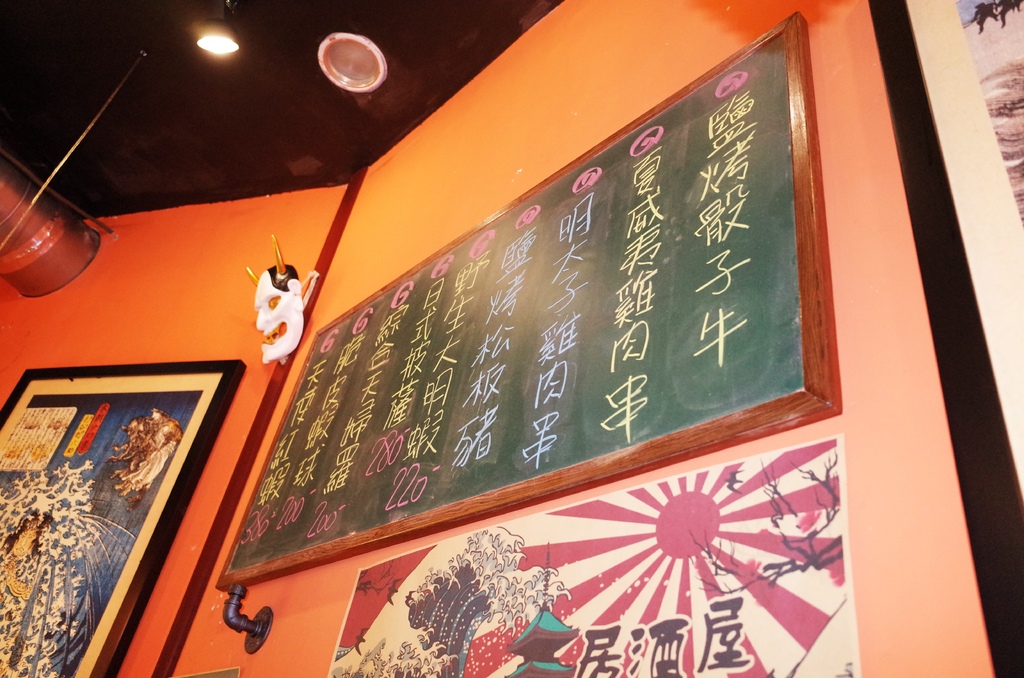 鹽烤骰子牛
夏威夷雞肉串
明太子雞肉串
鹽烤松板豬
野生大明蝦
220-
日式披薩
280-
綜合天婦羅
200-
脆皮蝦球
200-
天使紅蝦
居酒屋